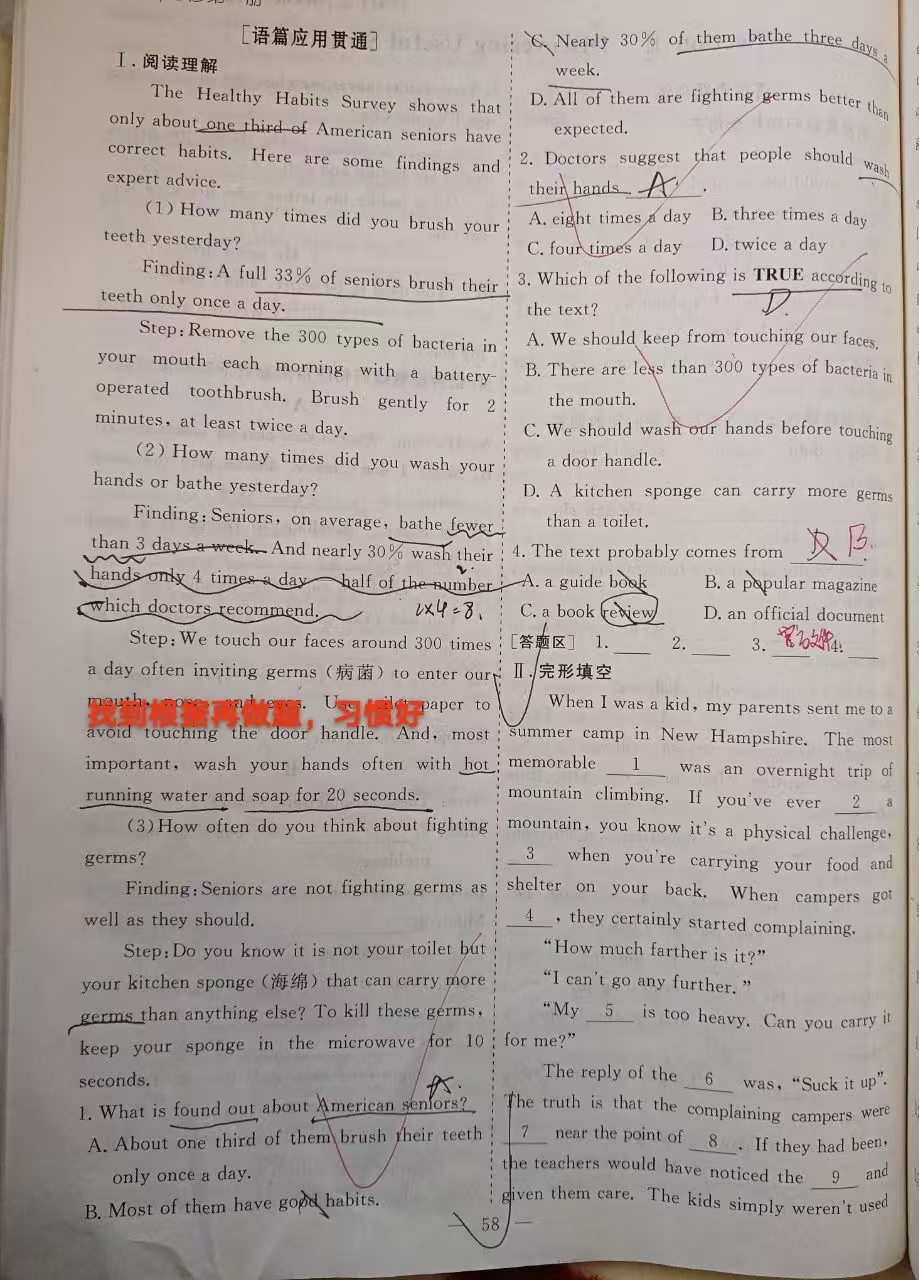 [语篇应用贯通]
Ⅰ.阅读理解
The Healthy Habits Survey shows that
only about one third of American seniors have
correct habits. Here are some findings and
expert advice.
(1)How many times did you brush your
teeth yesterday?
Finding:A full 33% of seniors brush their
teeth only once a day.
Step:Remove the 300 types of bacteria in
your mouth each morning with a battery-
operated toothbrush. Brush gently for 2
minutes, at least twice a day.
(2)How many times did you wash your
hands or bathe yesterday?
Finding:Seniors, on average, bathe fewer
than 3 days a week. And nearly 30% wash their
hands only 4 times a day—half of the number
which doctors recommend.
2×4=8.
Step:We touch our faces around 300 times
a day often inviting germs(病菌)to enter our
mouth, nose, and eyes. Use paper to
找到根据再做题，习惯好
avoid touching the door handle. And, most
important, wash your hands often with hot
running water and soap for 20 seconds.
(3)How often do you think about fighting
germs?
Finding:Seniors are not fighting germs as
well as they should.
Step:Do you know it is not your toilet but
your kitchen sponge(海绵)that can carry more
germs than anything else? To kill these germs,
keep your sponge in the microwave for 10
seconds.
A.
1. What is found out about American seniors?
A. About one third of them brush their teeth
only once a day.
B. Most of them have good habits.
C. Nearly 30% of them bathe three days a
week.
D. All of them are fighting germs better than
expected.
2. Doctors suggest that people should wash
their hands A.
A. eight times a day B. three times a day
C. four times a day D. twice a day
3. Which of the following is TRUE according to
the text?
D.
A. We should keep from touching our faces.
B. There are less than 300 types of bacteria in
the mouth.
C. We should wash our hands before touching
a door handle.
D. A kitchen sponge can carry more germs
than a toilet.
4. The text probably comes from B.
A. a guide book B. a popular magazine
C. a book review D. an official document
[答题区] 1. 2. 3. 官方文件 4.
Ⅱ.完形填空
When I was a kid, my parents sent me to a
summer camp in New Hampshire. The most
memorable 1 was an overnight trip of
mountain climbing. If you've ever 2 a
mountain, you know it's a physical challenge,
3 when you're carrying your food and
shelter on your back. When campers got
4, they certainly started complaining.
"How much farther is it?"
"I can't go any further."
"My 5 is too heavy. Can you carry it
for me?"
The reply of the 6 was, "Suck it up".
The truth is that the complaining campers were
7 near the point of 8. If they had been,
the teachers would have noticed the 9 and
given them care. The kids simply weren't used
58